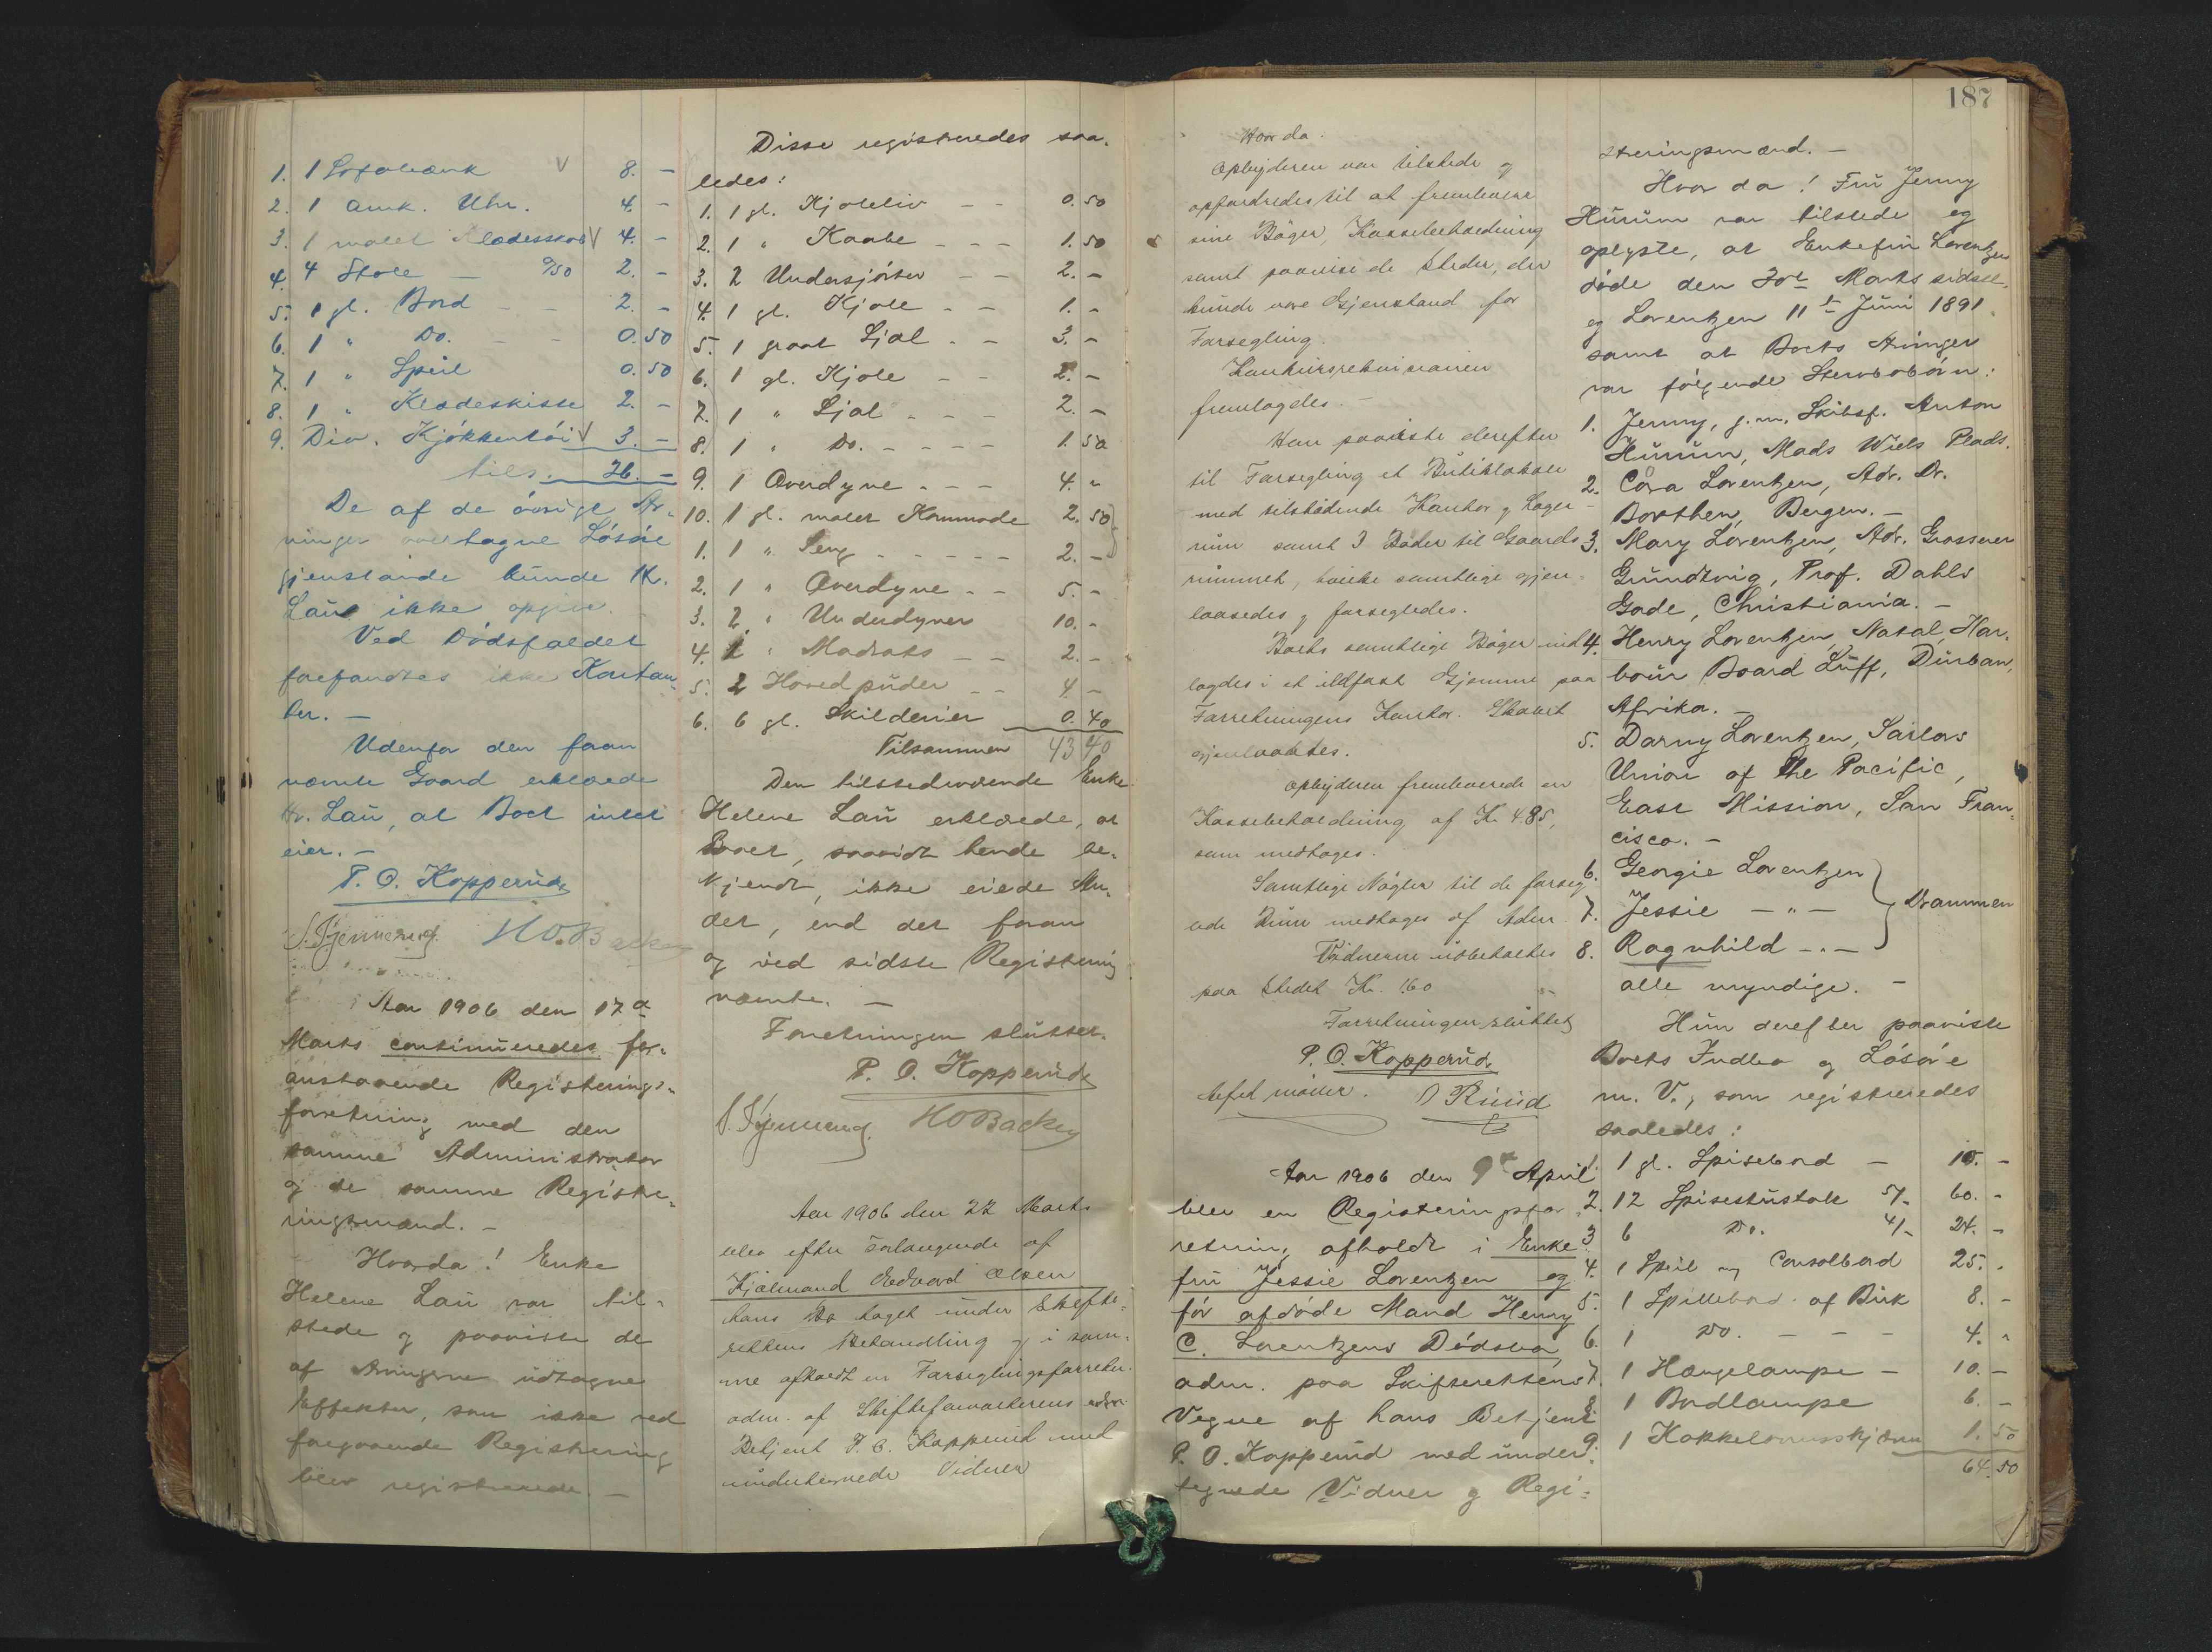 1. 1 Sofabænk √ 8. -
2. 1 amk. Uhr. 4. -
3. 1 malet Klædesskab √ 4. -
4. 4 Stole - 0/50 2. -
5. 1 gl. Bord - - 2. -
6. 1 " Do. - - 0.50
7. 1 " Speil 0.50
8. 1 " Klædeskiste 2. -
9. Div. Kjøkkentøi √ 3. -
tils. 26. -
De af de øvrige Ar-
vinger overtagne Løsøre
gjenstande kunde Hr.
Lau ikke opgive.
Ved Dødsfaldet
forefandtes ikke Kontan-
ter. -
Udenfor den foran
nævnte Gaard erklærede
Hr. Lau, at Boet intet
eier. -
P. O. Kopperud
HO. Backer
Aar 1906 den 17de
Marts continueredes for-
anstaaende Registerings-
forretning med den
samme Administrator
og de samme Registe-
ringsmænd. -
Hvorda! Enke
Helene Lau var til-
stede og paaviste de
af Arvingerne udtagne
Effekter, som ikke ved
foregaaende Registrering
blev registrerede. -
Disse registreredes saa-
ledes:
1. 1 gl. Kjoleliv - - 0.50
2. 1 " Kaabe - - - 1.50
3. 2 Underskjørter - - 2. -
4. 1 gl. Kjole - - 1. -
5. 1 graat Sjal - - 3. -
6. 1 gl. Kjole - - 2. -
7. 1 " Sjal - - - 2. -
8. 1 " Do. - - - - 1.50
9. 1 Overdyne - - - 4. "
10. 1 gl. malet Kommode 2.50
1. 1 " Seng - - - - - 2. -
2. 1 " Overdyne - - 5. -
3. 2 " Underdyner 10. -
4. 1 " Madrats - - 2. -
5. 2 Hovedpuder - - 4. -
6. 6 gl. Skilderier 0.40
Tilsammen 43 40
Den tilstedeværende Enke
Helene Lau erklærede, at
Boet, saavidt hende be-
kjendt, ikke eiede An-
det, end det foran
og ved sidste Registering
nævnte. -
Forretningen sluttet.
P. O. Kopperud
HOBacker
Aar 1906 den 22 Marts
blev efter Forlangende af
Kjølmand Edvard Olsen
hans Bo taget under Skifte-
rettens Behandling og i sam-
me afholdt en Forseglingsforretn.
adm. af Skifteforvalterens edsv.
Betjent P. O. Kopperud med
undertegnede Vidner
Hvor da:
Opbyderen var tilstede og
opfordredes til at fremlevere
sine Bøger, Kassebeholdning
samt paavise de Steder, der
kunde være Gjenstand for
Forsegling.
Konkursrekvisitionen
fremlagdes. -
Han paaviste derefter
til Forsegling et Butiklokale
med tilstødende Kontor og Lager-
rum samt 3 Boder til Gaards-
rummet, hvilke samtlige gjen-
laasedes og forsegledes.
Boets samtlige Bøger ind-
lagdes i et ildfast Gjemme paa
Forretningens Kontor. Skabet
gjenlaastes.
Opbyderen fremleverede en
Kassebeholdning af Kr. 4.85,
som medtoges.
Samtlige Nøgler til de forseg-
lede Rum medtoges af Adm.
Vidnerne udbetaltes
paa Stedet Kr. 1.60
Forretningen sluttet
P. O. Kopperud
Aar 1906 den 9de April
blev en Registeringsfor-
retning afholdt i Enke-
fru Jessie Lorentzen og
før afdøde Mand Henry
C. Lorentzens Dødsbo,
adm. paa Skifterettens
Vegne af hans Betjent
P. O. Kopperud med under-
tegnede Vidner og Regi-
187
streringsmænd. -
Hvor da! Fru Jenny
Hurum var tilstede og
oplyste, at Enkefru Lorentzen
døde den 30te Marts sidstl.
og Lorentzen 11te Juni 1891
samt at Boets Arvinger
var følgende Stervbobørn:
1. Jenny, g. m. Skibsf. Anton
Hurum, Mads Wiels Plads.
2. Cora Lorentzen, Adr. Dr.
Borthen, Bergen. -
3. Mary Lorentzen, Adr. Grosserer
Grundtvig, Prof. Dahls
Gade, Christiania. -
4. Henry Lorentzen, Natal Har-
bour Board Luff, Durban,
Afrika. -
5. Darny Lorentzen, Sailors
Union of the Pacific,
East Mission, San Fran-
cisco. -
6. Georgie Lorentzen
7. Jessie - " - Drammen
8. Ragnhild - " -
alle myndige. -
Hun derefter paaviste
Boets Indbo og Løsøre
m. V., som registreredes
saaledes:
1. 1 gl. Spisebord - 10. -
2. 12 Spisestustole 5/- 60. -
3 6 Do. 4/- 24. -
4. 1 Speil og Consolbord 25. -
5. 1 Spillebord af Birk 8. -
6. 1 Do. - - - 4. "
7. 1 Hængelampe - 10. -
8. 1 Bordlampe 6. -
9. 1 Kakkelovnsskjærm 1.50
64.50